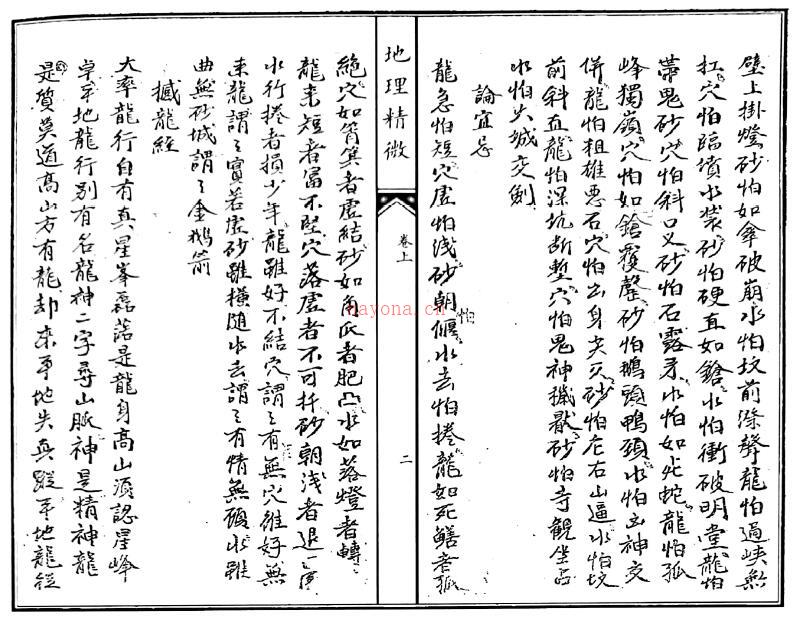 壁上掛燈砂怕如傘破崩水怕坟前滌聲龍怕過峽無
扛穴怕臨墳水裝砂怕硬直如鎗水怕衝破明堂龍怕
帶鬼砂穴怕斜口又砂怕石露牙水怕如死蛇龍怕孤
峰獨嶺穴怕如鎗覆罄砂怕鵝頭鴨頸水怕凶神交
併龍怕粗雄悪石穴怕出身尖灭砂怕左右山逼水怕坟
前斜直龍怕深坑断塹穴怕鬼神穢厭砂怕寺観坐占
水怕火城交劍
論宜忌
龍急怕短穴虚怕浅砂朝怕偃水去怕捲龍如死鱔者孤
地理精微
卷上
二
絶穴如筲箕者虚結砂如角爪者肥凸水如落燈者轉
龍来短者富不堅穴落虚者不可扦砂朝浅者退
水行捲者損少年龍雖好不結穴謂之有無穴雖好無
来龍謂之實若虚砂雖横随水去謂之有情無顧水雖
曲無砂城謂之金鵝箭
撼龍經
大率龍行自有真星峯磊落是龍身高山須認星峰
卓平地龍行别有名龍神二字尋山脈神是精神龍
是質莫道高山方有龍却来平地失真蹤平地龍從
nayona.cn